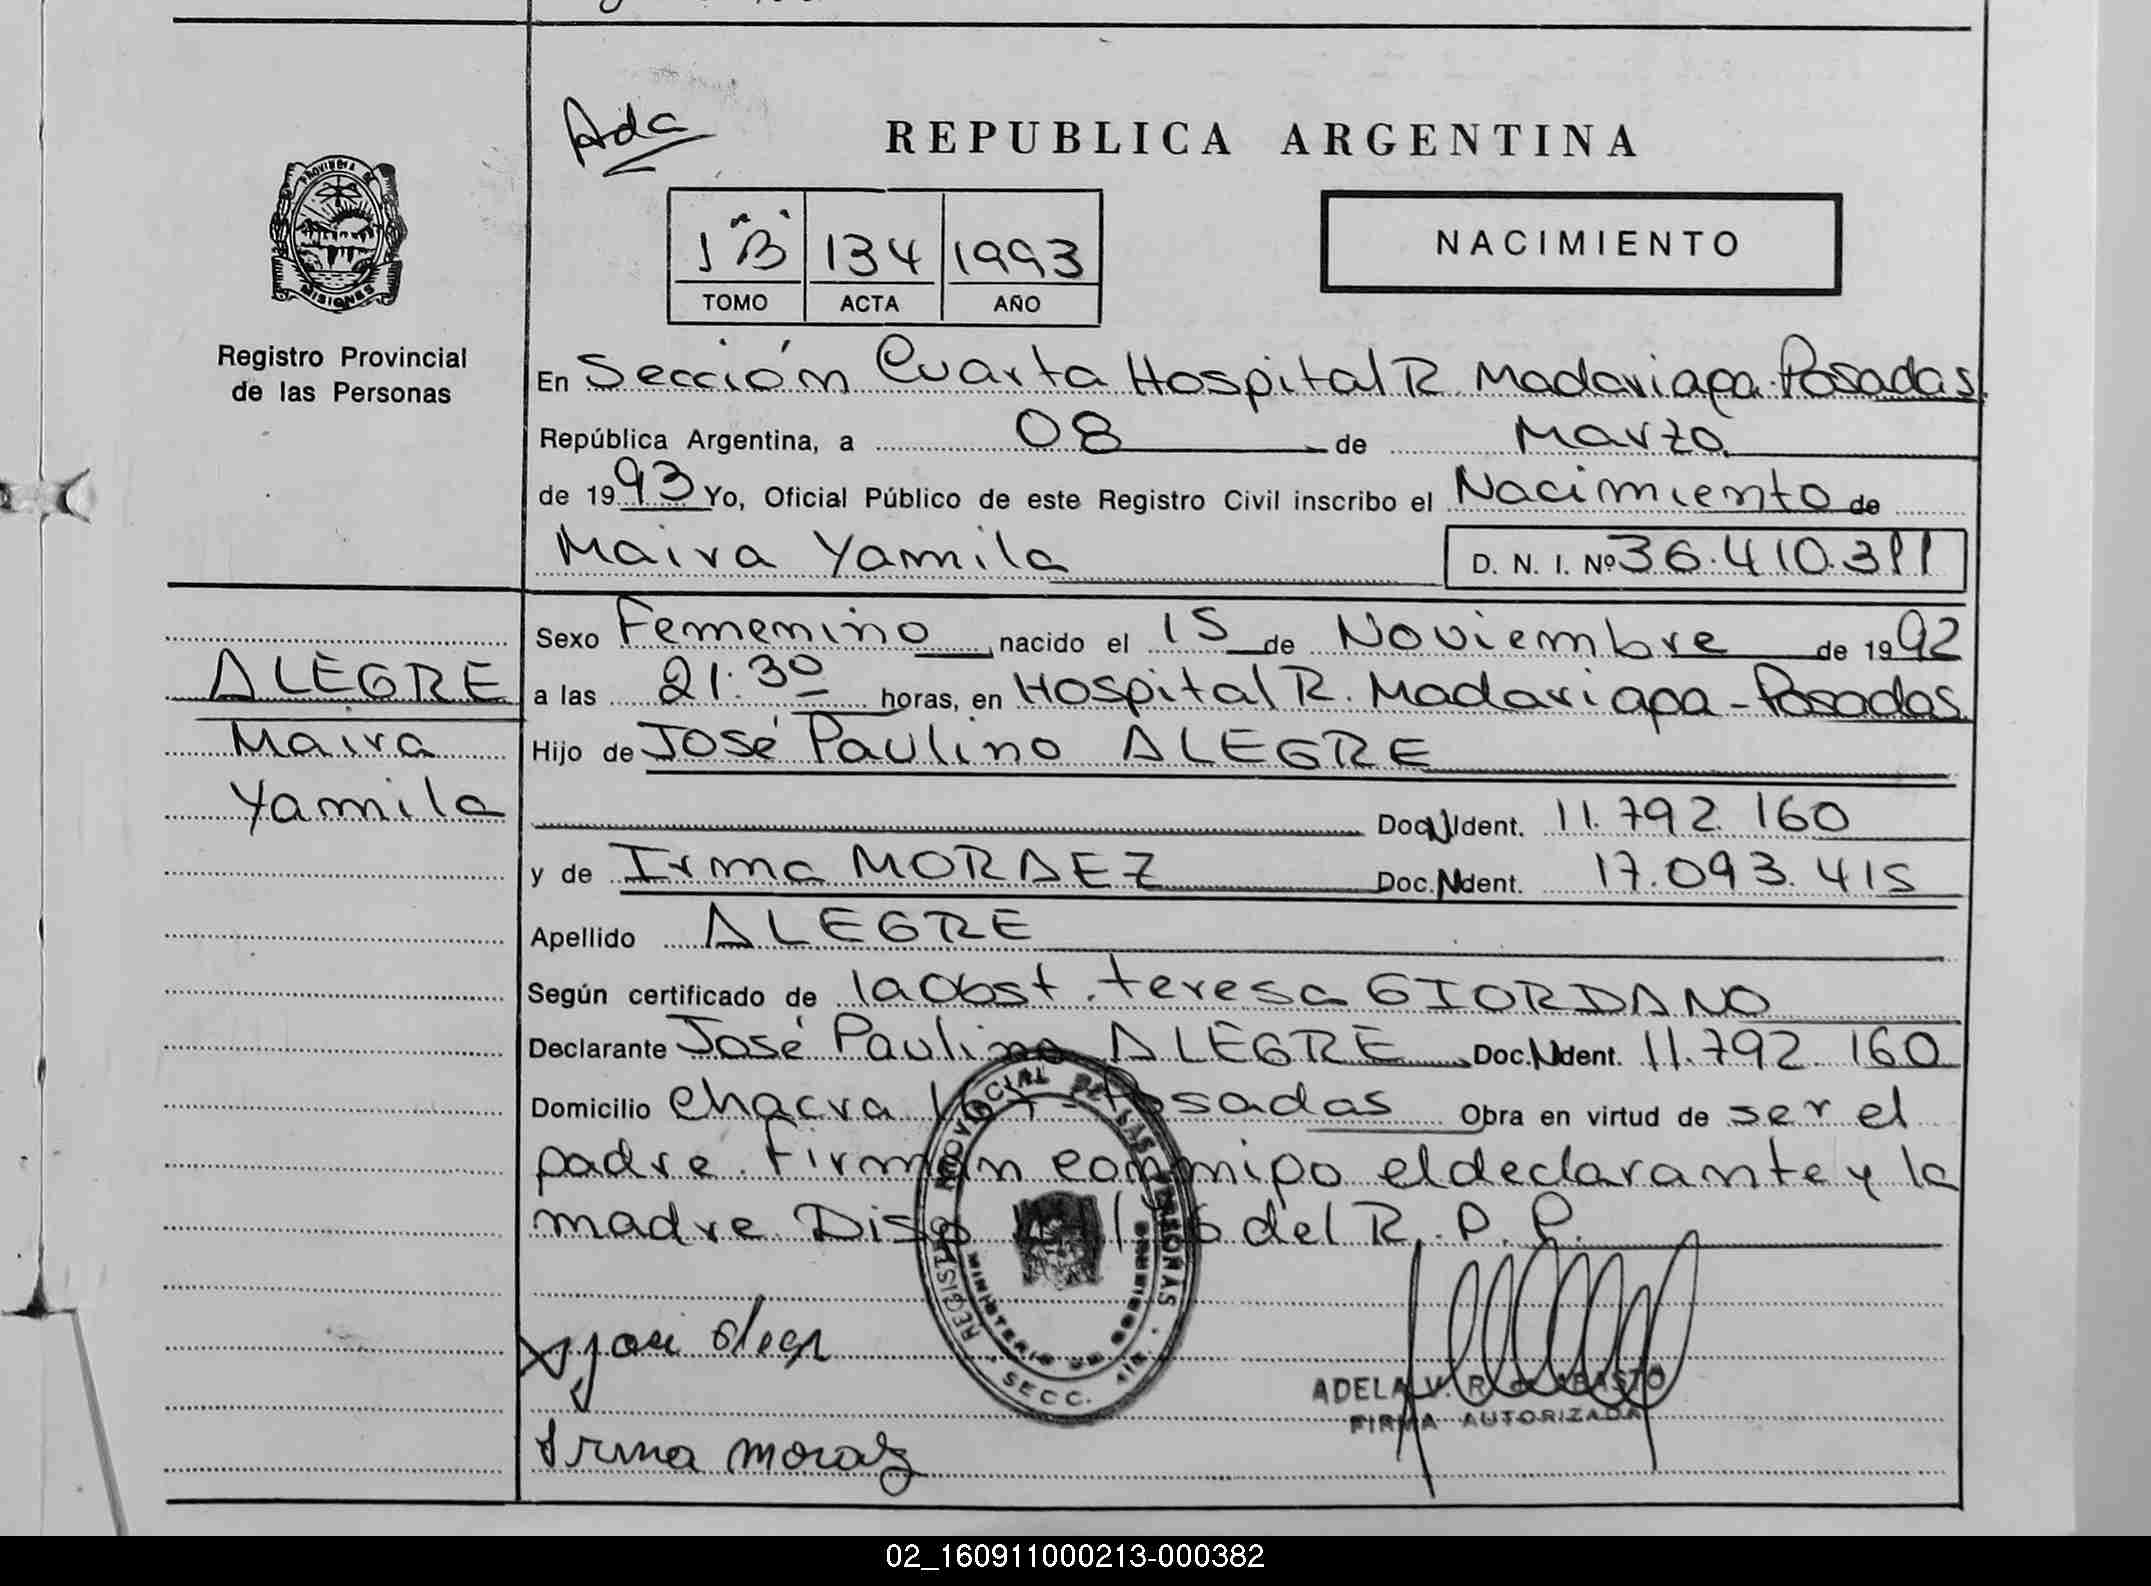 Ada
REPUBLICA ARGENTINA
1 "B" 134 1993
TOMO ACTA AÑO
NACIMIENTO
PROVINCIA DE
MISIONES
Registro Provincial
de las Personas
En Sección Cuarta Hospital R. Madariaga - Posadas
República Argentina, a 08 de Marzo
de 1993 Yo, Oficial Público de este Registro Civil inscribo el Nacimiento de
Maira Yamila D. N. I. Nº 36.410.311
Sexo Femenino nacido el 15 de Noviembre de 1992
ALEGRE
a las 21:30 horas, en Hospital R. Madariaga - Posadas
Maira
Hijo de José Paulino ALEGRE
Yamila
Doc. N Ident. 11.792.160
y de Irma MORAEZ Doc. N Ident. 17.093.415
Apellido ALEGRE
Según certificado de la Obst. teresa GIORDANO
Declarante José Paulino ALEGRE Doc. N Ident. 11.792.160
Domicilio Chacra Posadas Obra en virtud de ser el
padre. Firman conmigo el declarante y la
madre Disp del R. P. P.
REGISTRO PROVINCIAL DE LAS PERSONAS
MINISTERIO DE GOBIERNO
SECC. 4ta.
ADELA V. R. de ABASTO
FIRMA AUTORIZADA
Irma Moraez
02_160911000213-000382